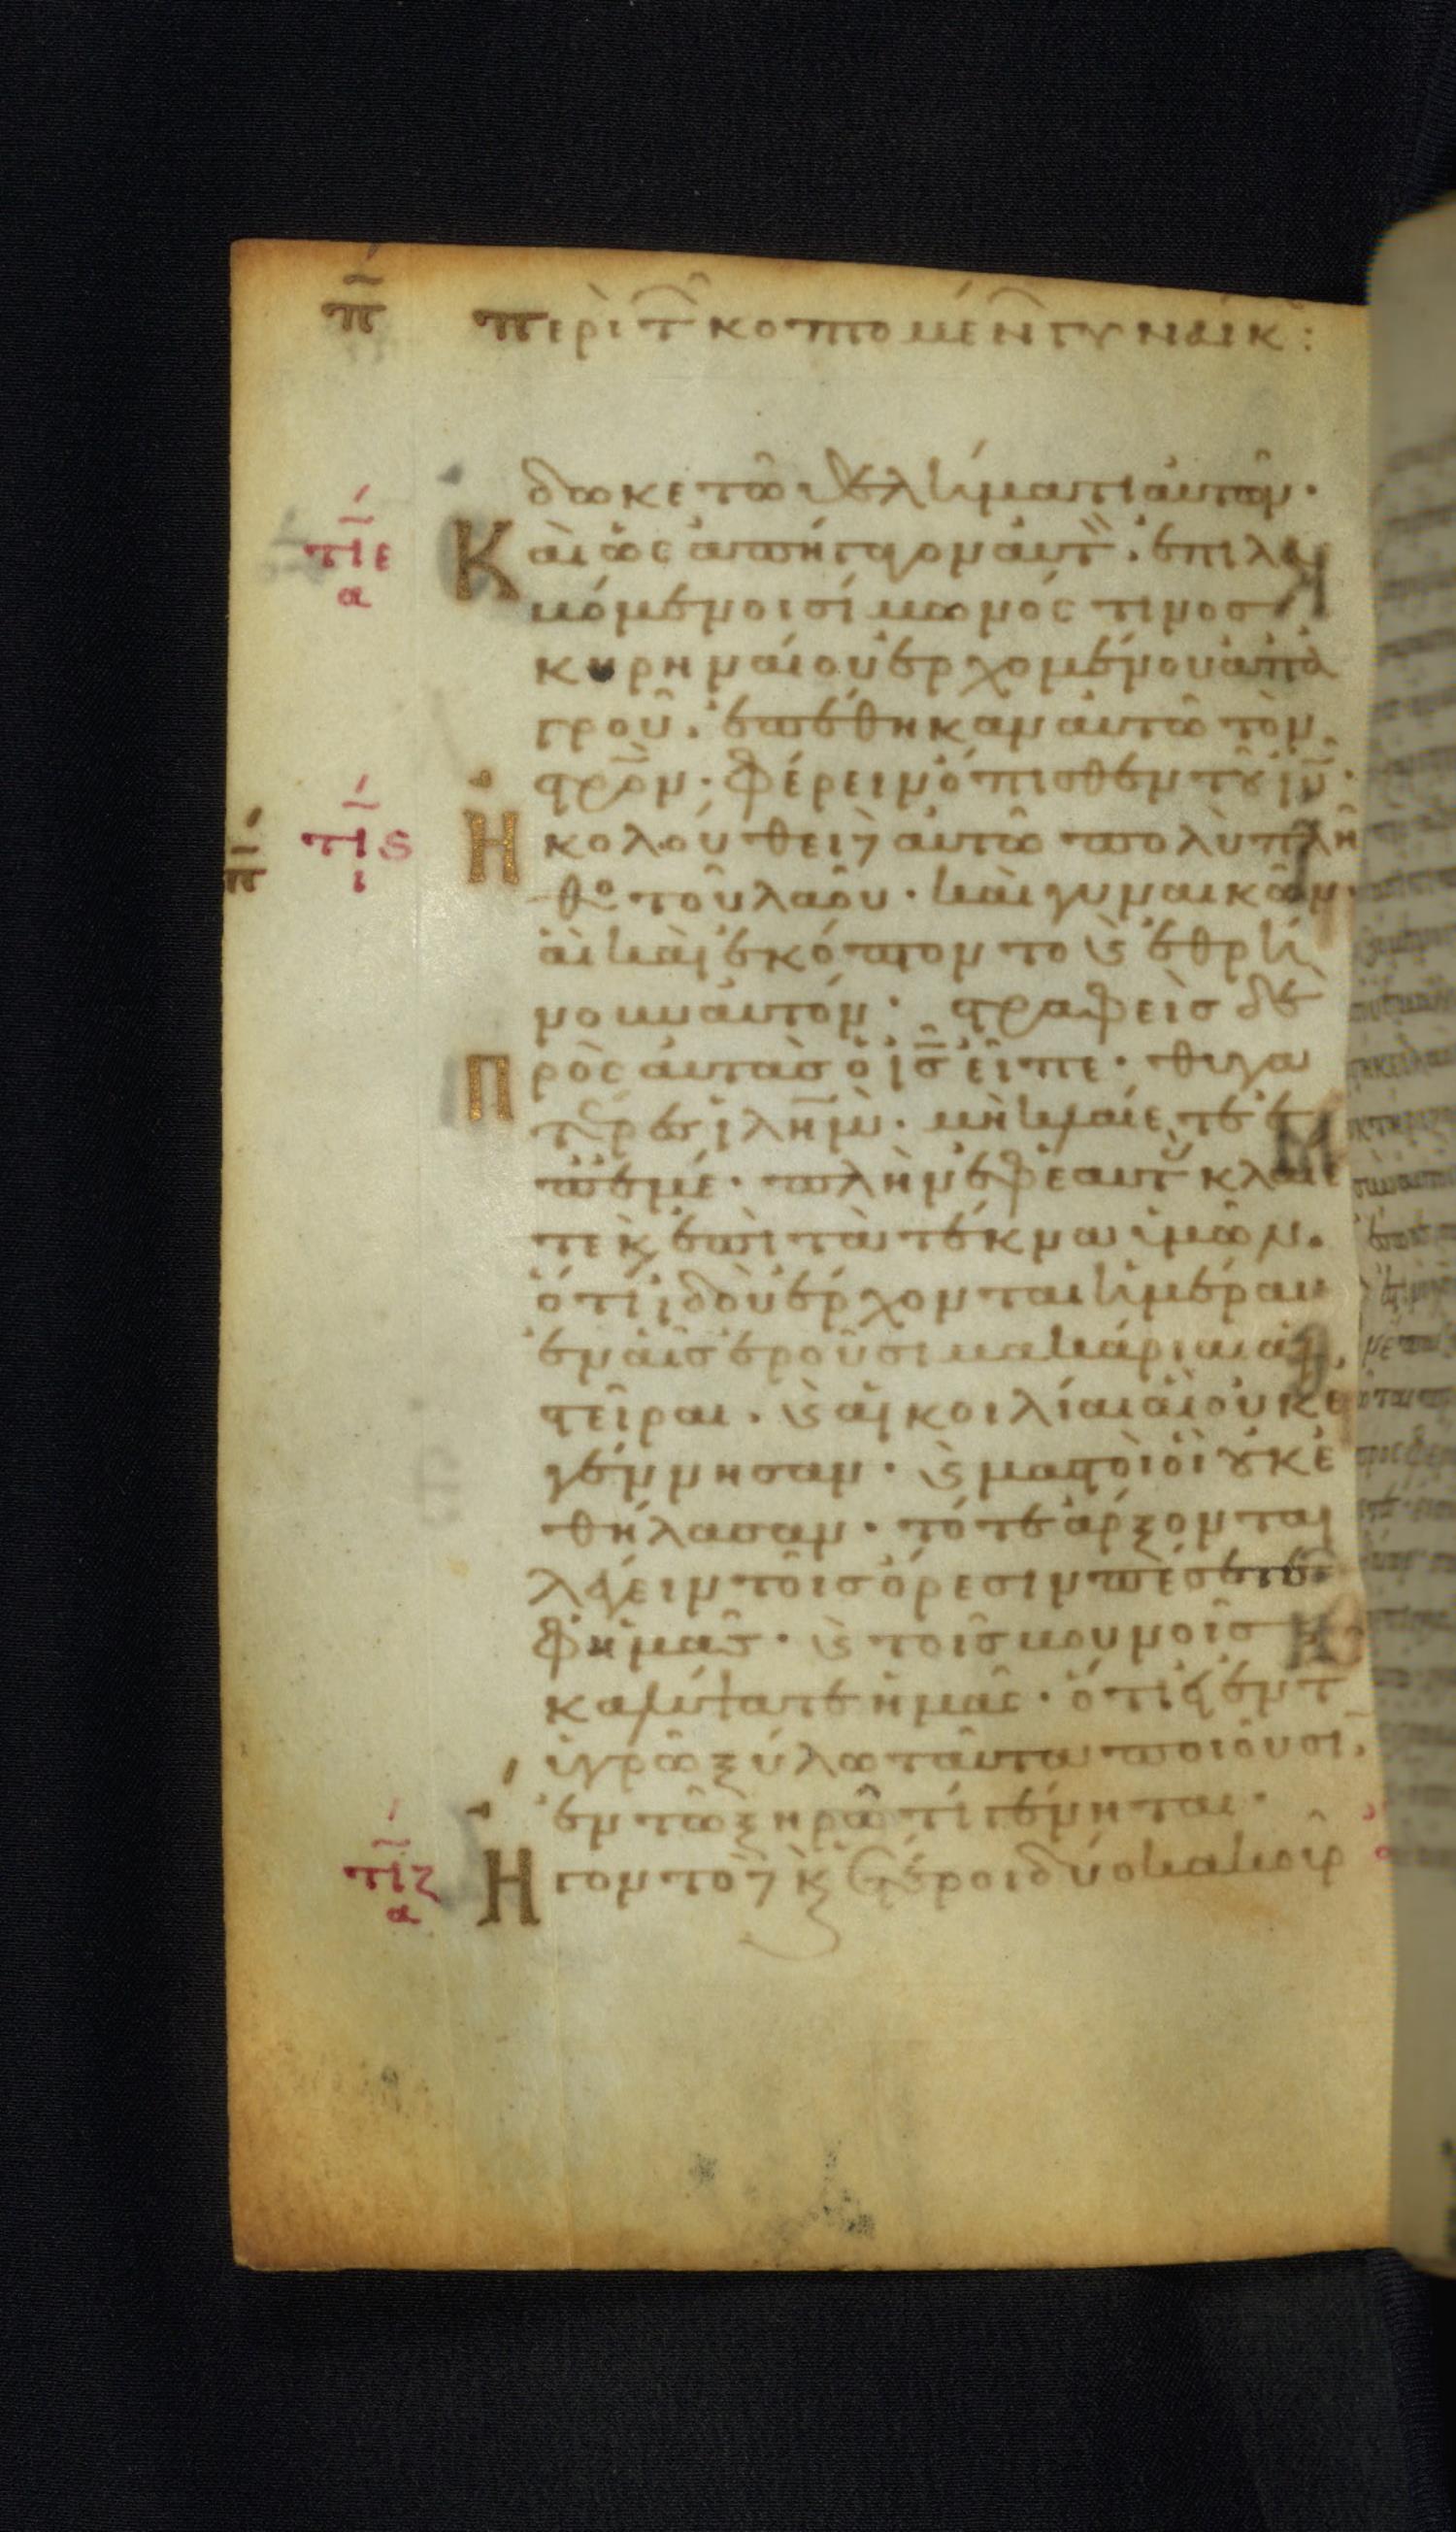 π περὶ τ κοπτομέν γυναικ:
δωκε τῶ θελήματι αὐτῶν·
τιε Καὶ ὡς ἀπήγαγον αὐτ· ἐπιλα
α βόμενοι σίμωνός τινος
κυρηναίου ἐρχομένου ἀπὸ ἀ
γροῦ· ἐπέθηκαν αὐτῶ τὸν
στρον· φέρειν ὄπισθεν τοῦ ιυ·
π τις Ηκολούθει δὲ αὐτῶ πολὺ πλῆ
ι θος τοῦ λαοῦ· καὶ γυναικῶν·
αἳ καὶ ἐκόπτοντο καὶ ἐθρή
νουν αὐτόν· στραφεὶς δὲ
Πρὸς αὐτὰς ὁ ις εἶπε· θυγα
τέρες ιλημ· μὴ κλαίετε ἐ
π' ἐμέ· πλὴν ἐφ' ἑαυτ κλαίε
τε κ ἐπὶ τὰ τέκνα ὑμῶν·
ὅτι ἰδοὺ ἔρχονται ἡμέραι
ἐν αἷς ἐροῦσι μακάριαι αἱ
στεῖραι· καὶ αἱ κοιλίαι αἳ οὐκ ἐ
γέννησαν· καὶ μαστοὶ οἳ οὐκ ἐ
θήλασαν· τότε ἄρξονται
λέγειν τοῖς ὄρεσιν πέσετε
ἐφ' ἡμᾶς· καὶ τοῖς βουνοῖς
καλύψατε ἡμᾶς· ὅτι εἰ ἐν τ
ὑγρῶ ξύλω ταῦτα ποιοῦσι·
ἐν τῶ ξηρῶ τί γένηται·
τιζ Ηγοντο δὲ κ ἕτεροι δύο κακοῦρ
α